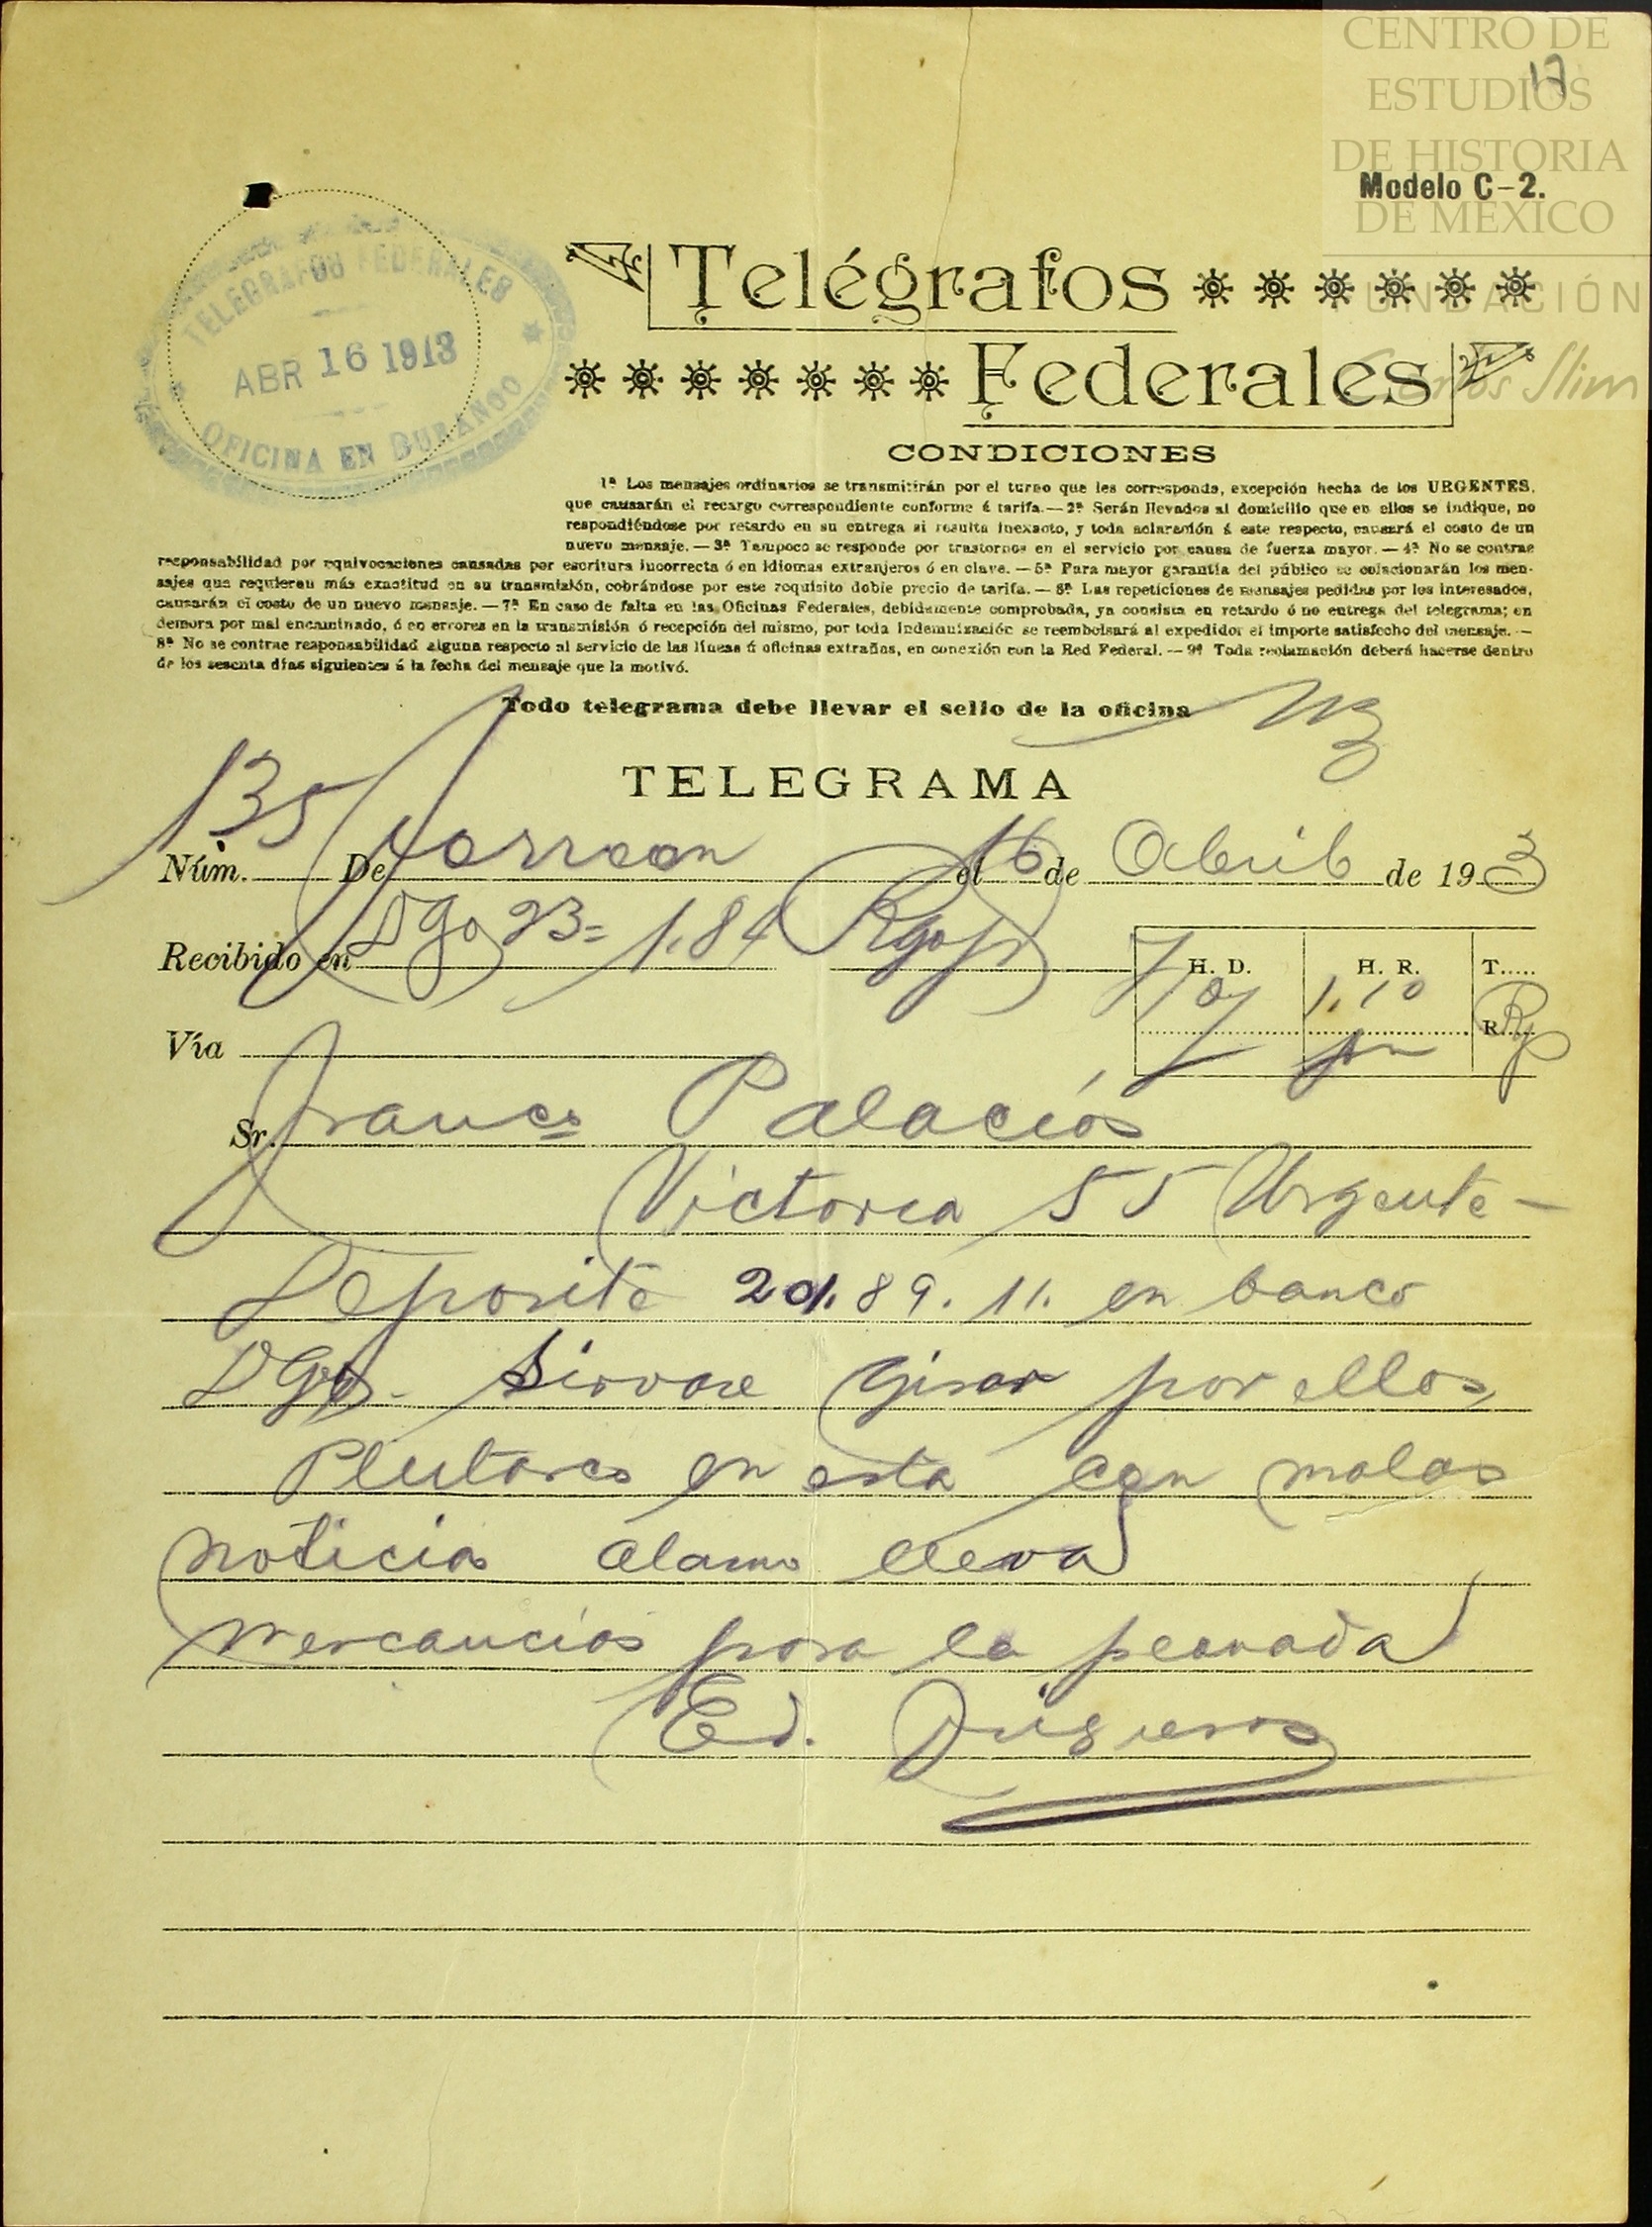 CENTRO DE
ESTUDIOS
DE HISTORIA
DE MÉXICO
FUNDACIÓN
Carlos Slim
17
Modelo C-2.
TELEGRAFOS FEDERALES
ABR 16 1913
OFICINA EN DURANGO
Telégrafos
Federales
CONDICIONES
1ª Los mensajes ordinarios se transmitirán por el turno que les corresponda, excepción hecha de los URGENTES,
que causarán el recargo correspondiente conforme á tarifa.—2ª Serán llevados al domicilio que en ellos se indique, no
respondiéndose por retardo en su entrega si resulta inexacto, y toda aclaración á este respecto, causará el costo de un
nuevo mensaje.—3ª Tampoco se responde por trastornos en el servicio por causa de fuerza mayor.—4ª No se contrae
responsabilidad por equivocaciones causadas por escritura incorrecta ó en idiomas extranjeros ó en clave.—5ª Para mayor garantía del público se colacionarán los men-
sajes que requieran más exactitud en su transmisión, cobrándose por este requisito doble precio de tarifa.—6ª Las repeticiones de mensajes pedidas por los interesados,
causarán el costo de un nuevo mensaje.—7ª En caso de falta en las Oficinas Federales, debidamente comprobada, ya consista en retardo ó no entrega del telegrama; en
demora por mal encaminado, ó en errores en la transmisión ó recepción del mismo, por toda indemnización se reembolsará al expedidor el importe satisfecho del mensaje.—
8ª No se contrae responsabilidad alguna respecto al servicio de las líneas ú oficinas extrañas, en conexión con la Red Federal.—9ª Toda reclamación deberá hacerse dentro
de los sesenta días siguientes á la fecha del mensaje que la motivó.
Todo telegrama debe llevar el sello de la oficina
TELEGRAMA
Núm. 135 De Torreon el 16 de Abril de 19 3
Recibido en Dgo 23= 1.84
H. D. H. R. T.....
1.10 R....
pm
Vía
Sr. Franco Palacios
Victoria 55 Urgente-
Deposite 20.89.11. en banco
Dgo. Sirvase Girar por ellos
Plutarco en esta con malas
noticias alamo lleva
mercancias para la peonada
Ed.